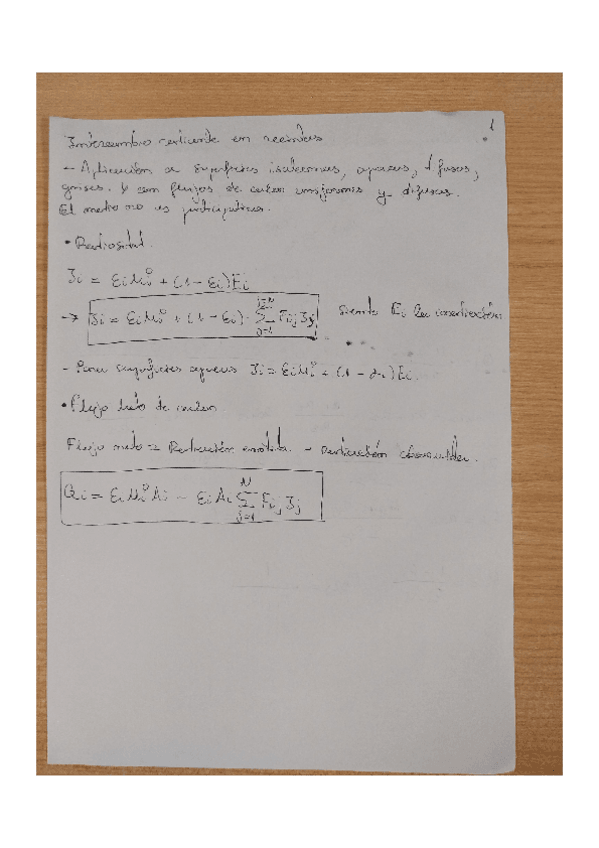 1
Intercambio radiante en recintos
- Aplicación a superficies isotermas, opacas, difusas,
grises. y con flujos de calor uniformes y difusos.
El medio no es participativo.
• Radiosidad.
Ji = εiMi⁰ + (1 - εi)Ei
→ Ji = εiMi⁰ + (1 - εi) · Σ Fij Jj siendo Ei la irradiación
- Para superficies opacas Ji = εiMi⁰ + (1 - αi)Ei.
• Flujo neto de calor
Flujo neto = Radiación emitida - radiación absorbida.
Qi = εiMi⁰Ai - εiAi Σ Fij Jj